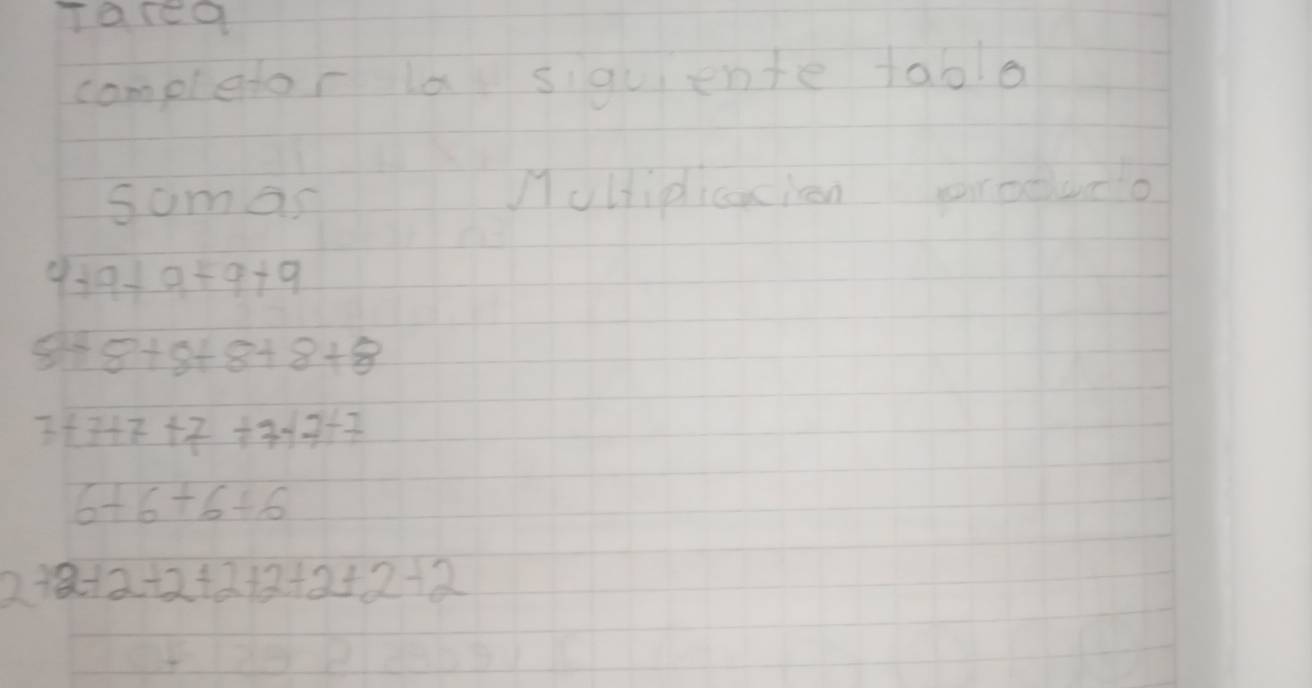 Tarea
completar la siguiente tabla
Sumas Multiplicacion producto
9+9+9+9+9
8+8+8+8+8+8
7+7+7+7+7+7+7
6+6+6+6
2+2+2+2+2+2+2+2+2